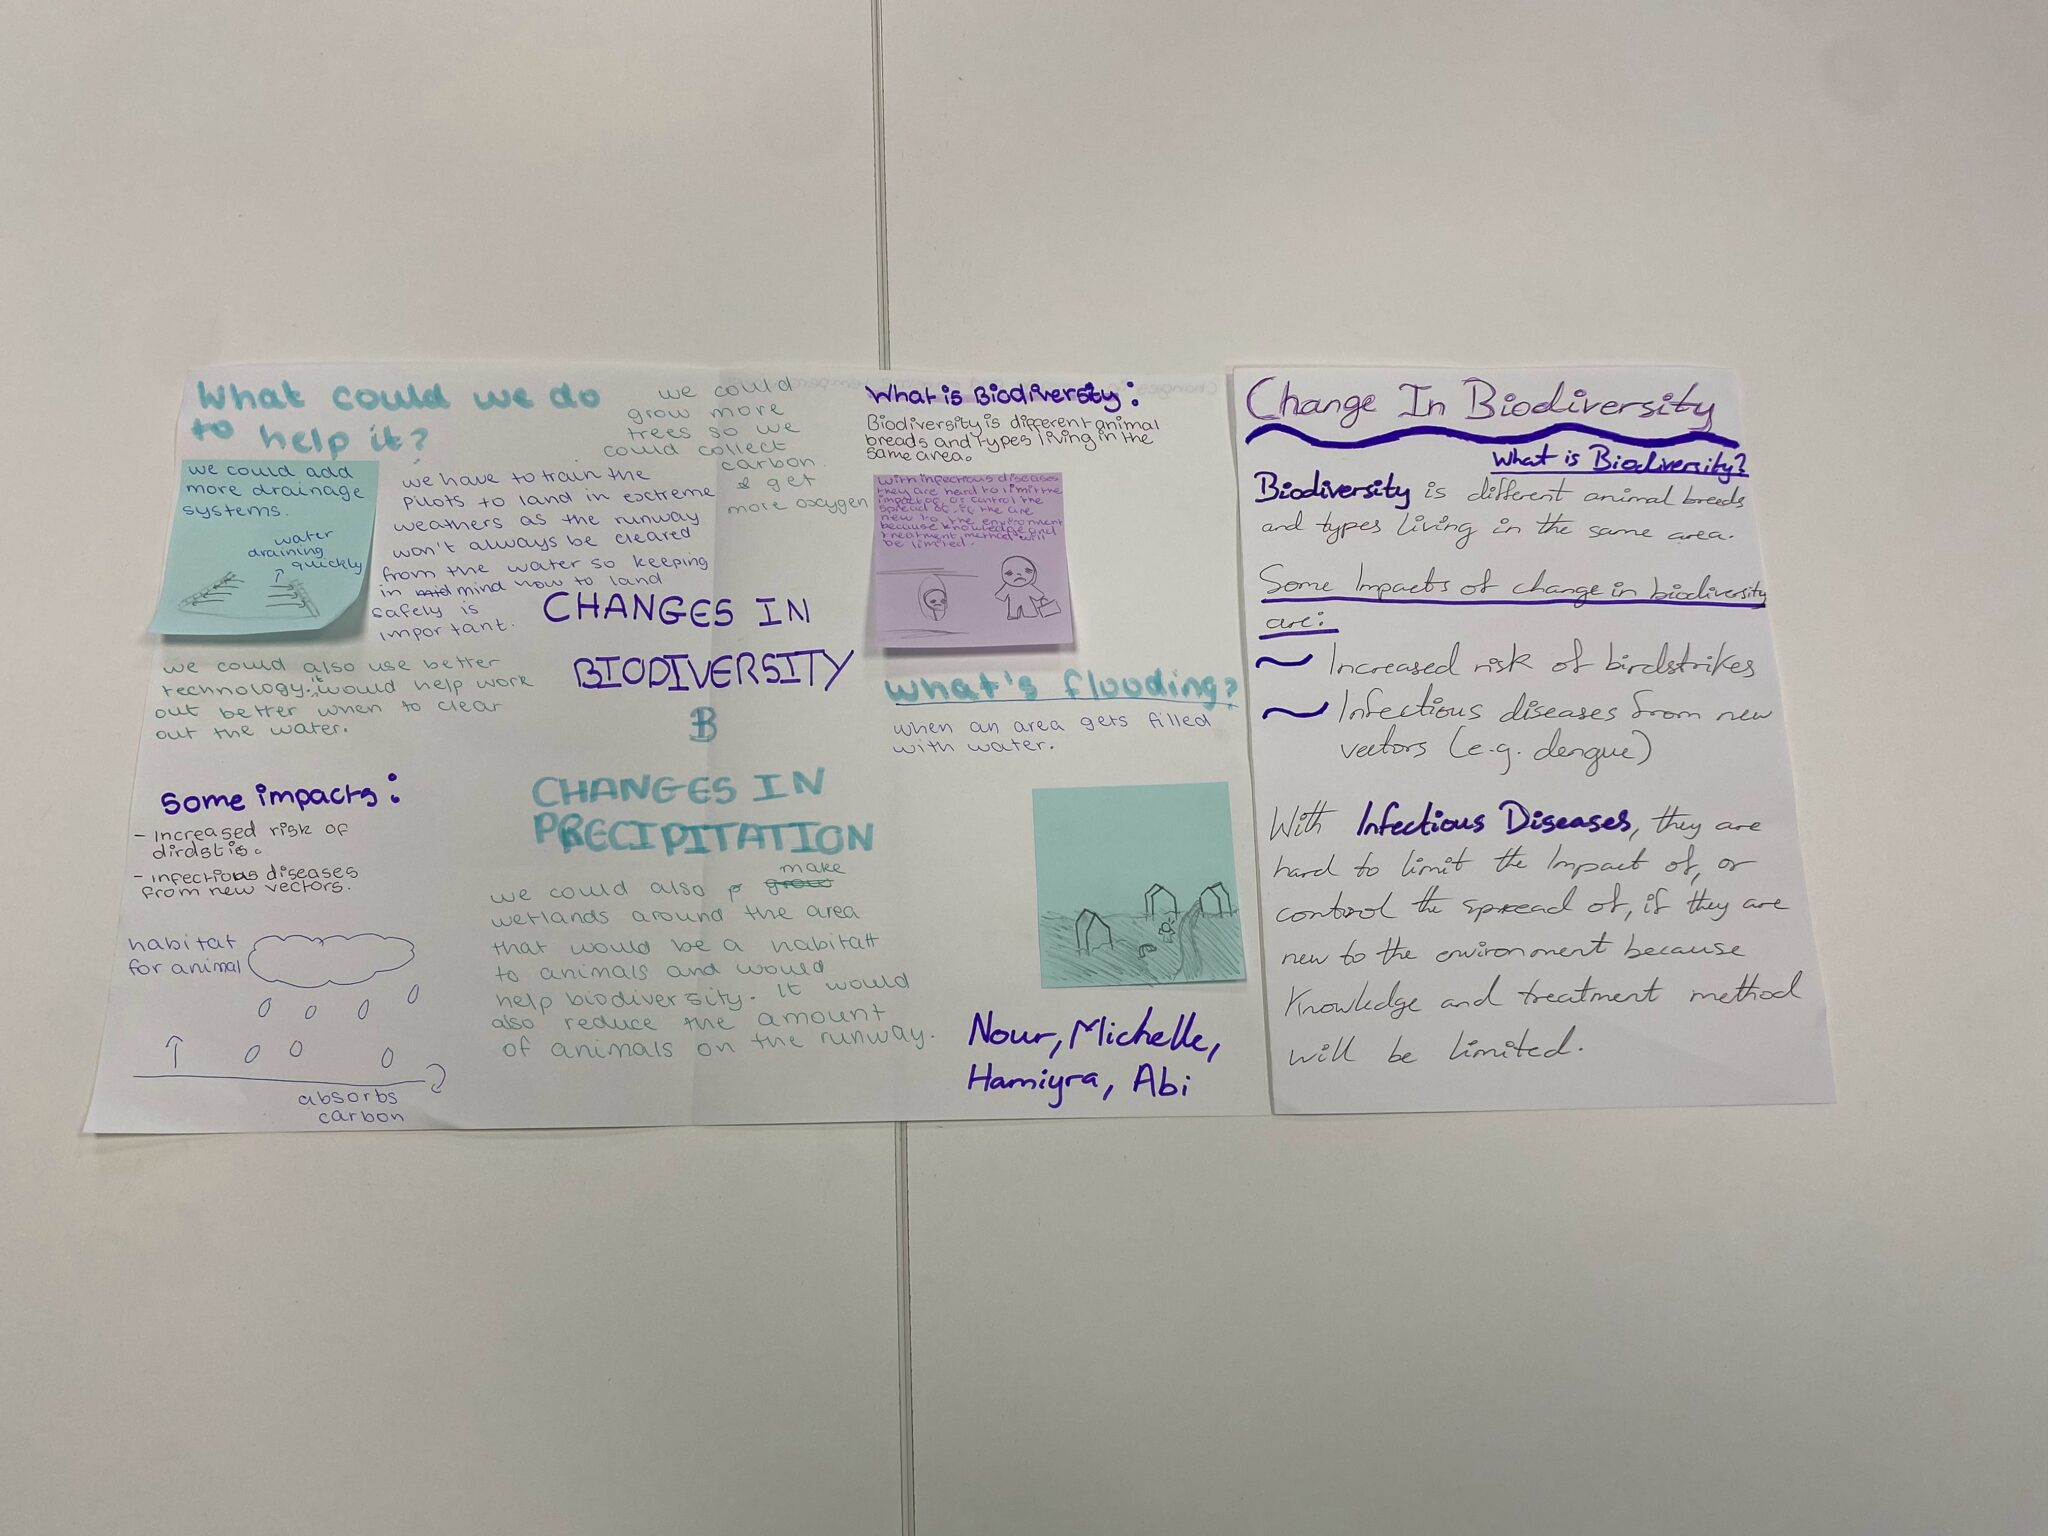 What could we do
to help it?
we could add
more drainage
systems.
water
draining
quickly
we have to train the
pilots to land in extreme
weathers as the runway
won't always be cleared
from the water so keeping
in mind how to land
safely is
important.
we could
grow more
trees so we
could collect
carbon.
& get
more oxygen
we could also use better
technology. it would help work
out better when to clear
out the water.
CHANGES IN
BIODIVERSITY
B
CHANGES IN
PRECIPITATION
some impacts:
- Increased risk of
dirdstis.
- infectious diseases
from new vectors.
habitat
for animal
absorbs
carbon
we could also make
wetlands around the area
that would be a habitatt
to animals and would
help biodiversity. It would
also reduce the amount
of animals on the runway.
What is Biodiversity:
Biodiversity is different animal
breads and types living in the
same area.
with infectious diseases
they are hard to limit the
impact of, or control the
spread of, if the are
new to the environment
because knowledge and
treatment method will
be limited.
What's flooding?
when an area gets filled
with water.
Nour, Michelle,
Hamiyra, Abi
Change In Biodiversity
What is Biodiversity?
Biodiversity is different animal breeds
and types living in the same area.
Some Impacts of change in biodiversity
are:
~ Increased risk of birdstrikes
~ Infectious diseases from new
vectors (e.g. dengue)
With Infectious Diseases, they are
hard to limit the Impact of, or
control the spread of, if they are
new to the environment because
Knowledge and treatment method
will be limited.